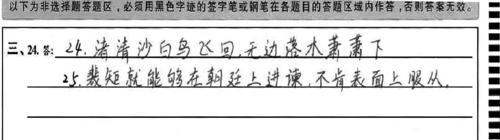 以下为非选择题答题区，必须用黑色字迹的签字笔或钢笔在各题目的答题区域内作答，否则答案无效。
三、24. 答: 24. 渚清沙白鸟飞回，无边落木萧萧下
25. 裴矩就能够在朝廷上进谏，不肯表面上服从。